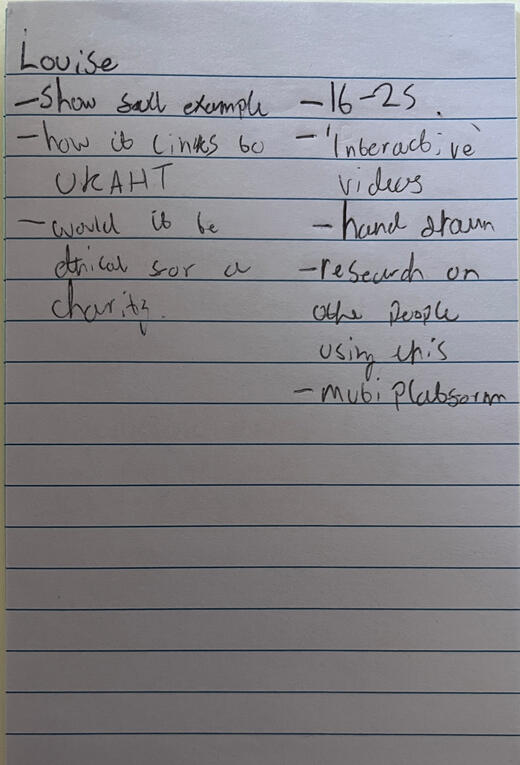 Louise
- Show example
- how it links to
UKAHT
- would it be
ethical for a
charity.
- 16-25.
- 'Interactive'
videos
- hand drawn
- research on
othe people
using this
- multi platform